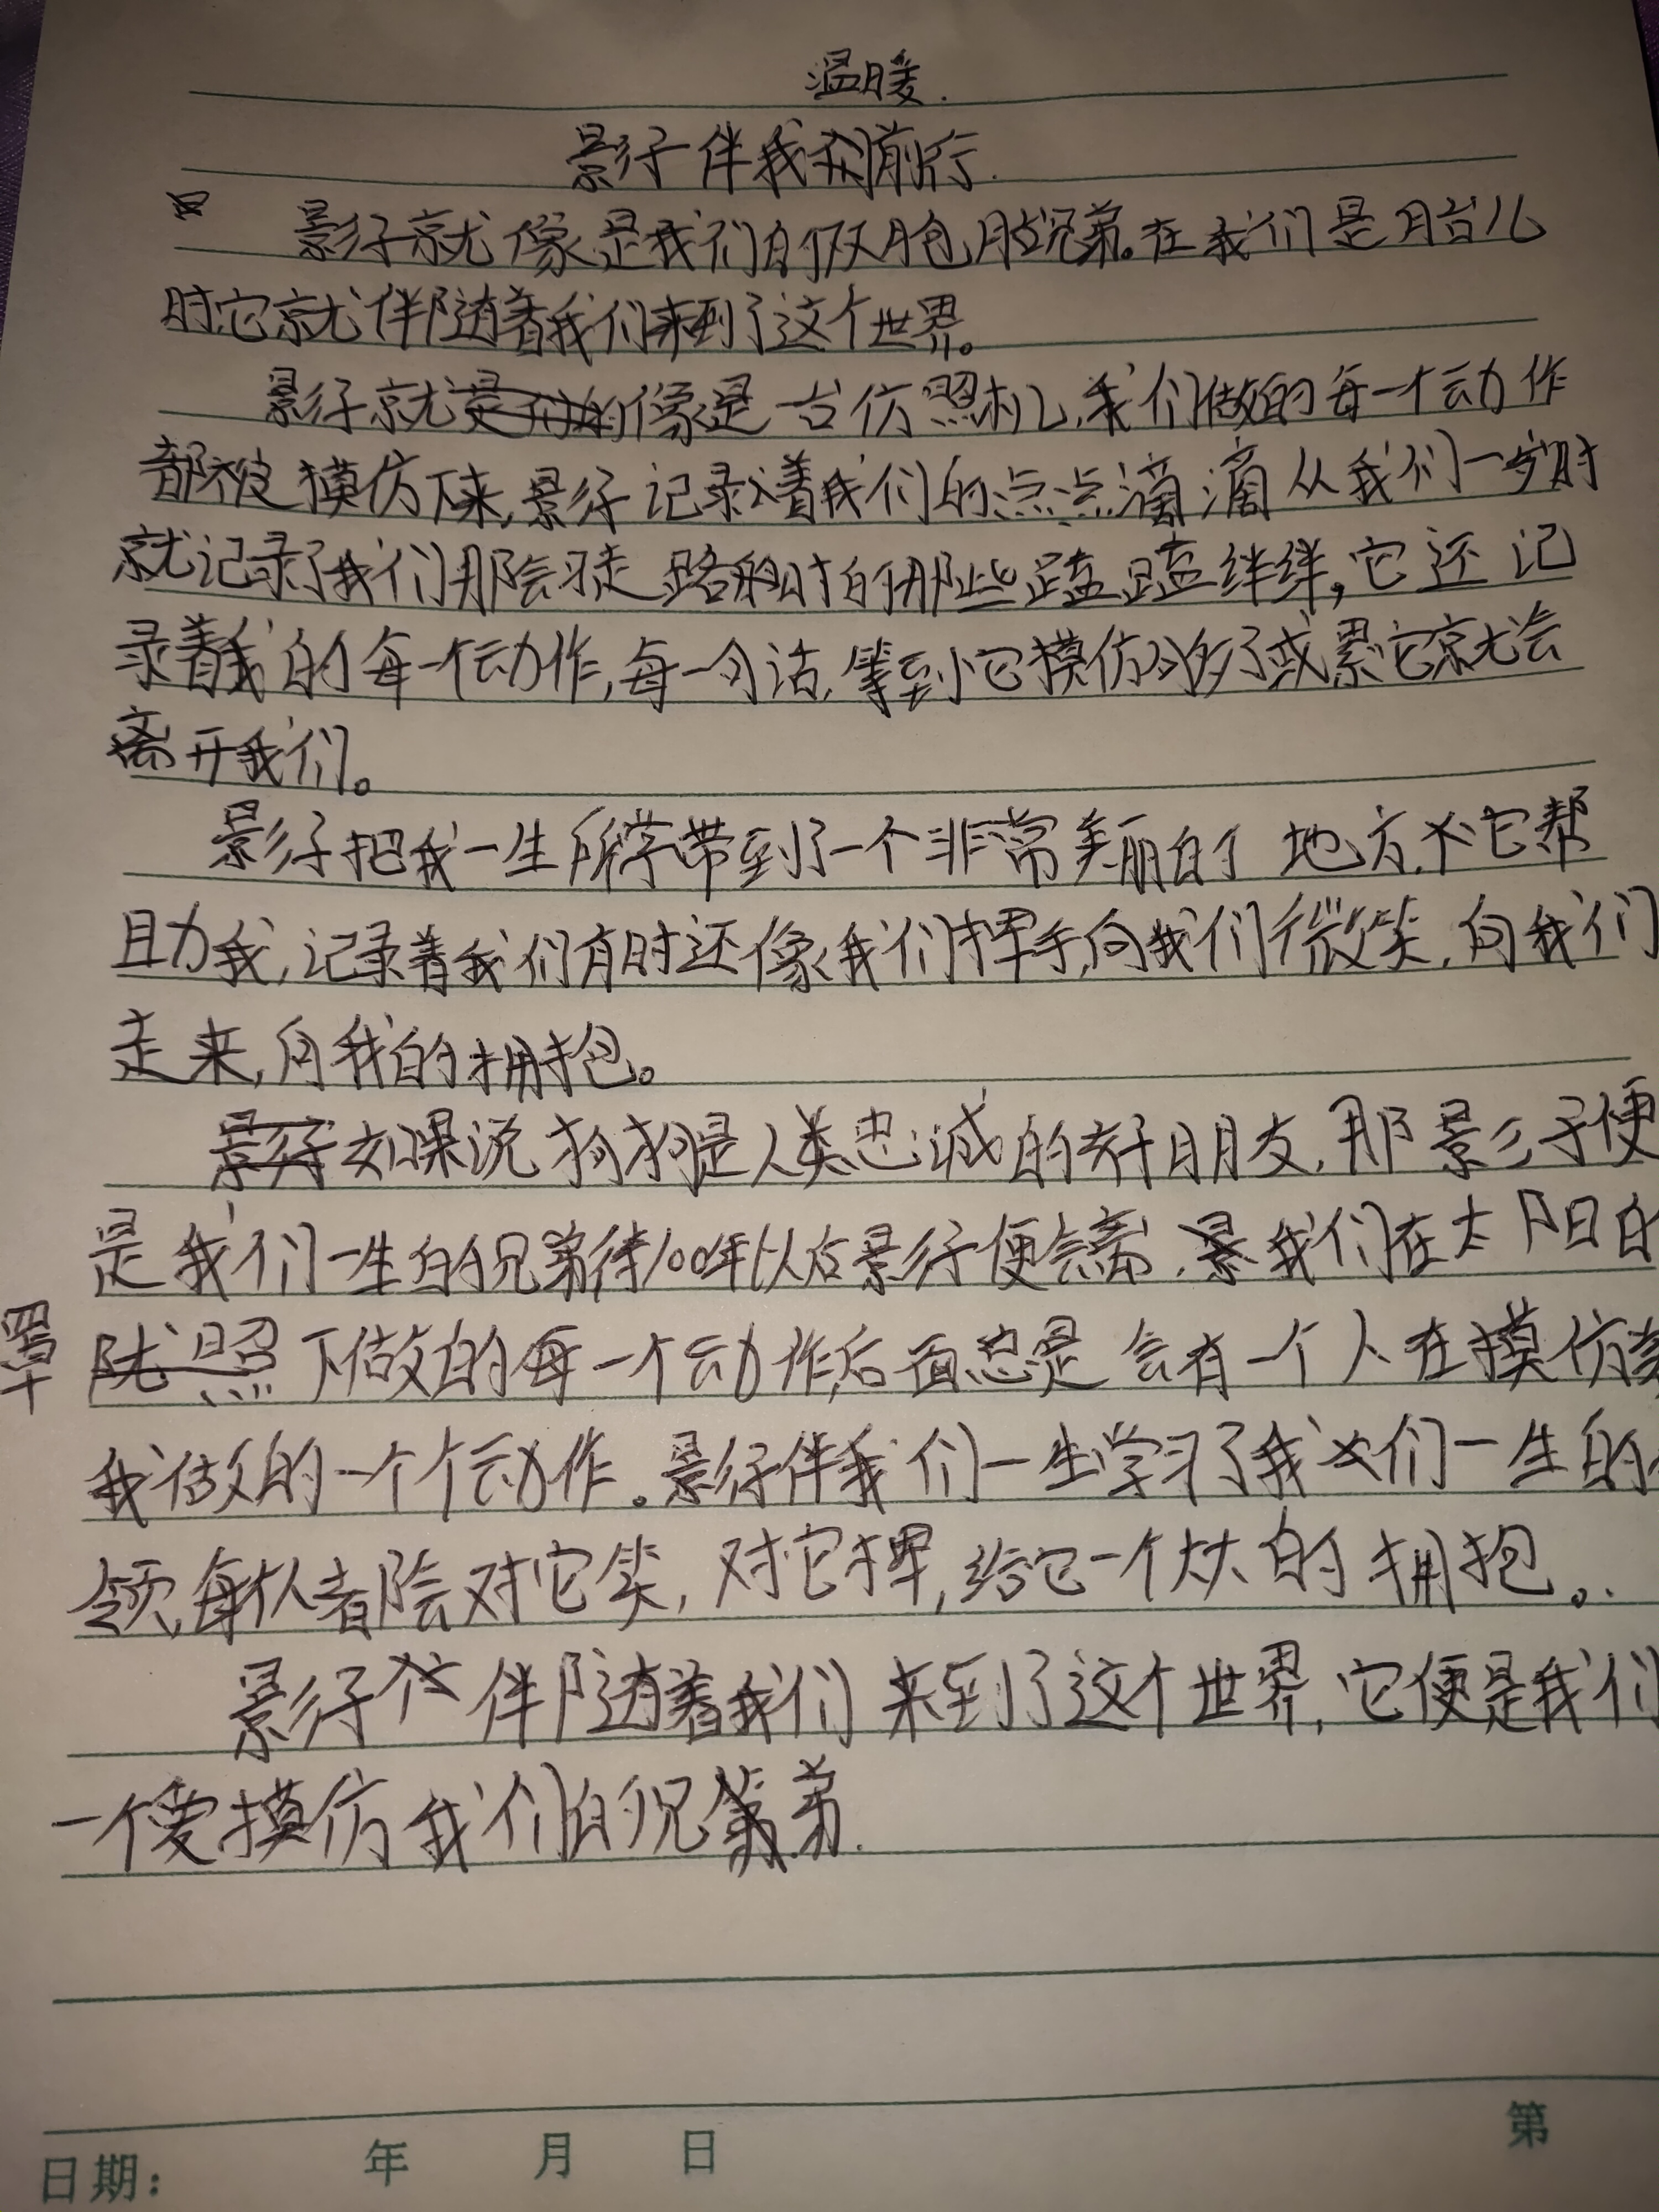 温暖.
影子伴我们前行.
影子就像是我们的双胞胎兄弟。在我们是胎儿
时它就伴随着我们来到了这个世界。
影子就像是一台仿照机,我们做的每一个动作
都被摸仿下来,影子记录着我们的点点滴滴从我们一岁时
就记录了我们那会习走路般时的那些磕磕绊绊,它还记
录着我的每一个动作,每一句话,等到它摸仿够了或累它就会
离开我们。
影子把我一生所学带到了一个非常美丽的地方,它帮
助我,记录着我们有时还像我们挥手,向我们微笑,向我们
走来,向我的拥抱。
如果说狗狗是人类忠诚的好朋友,那影子便
是我们一生的兄弟待100年以后影子便会离,我们在太阳的
罩 照下做的每一个动作,后面总是会有一个人在摸仿着
我做的一个个动作。影子伴我们一生学习了我们一生的
领,每人都会对它笑,对它挥,给它一个大大的拥抱。
影子伴随着我们来到了这个世界,它便是我们
一个爱摸仿我们的兄弟.
日期: 年 月 日 第